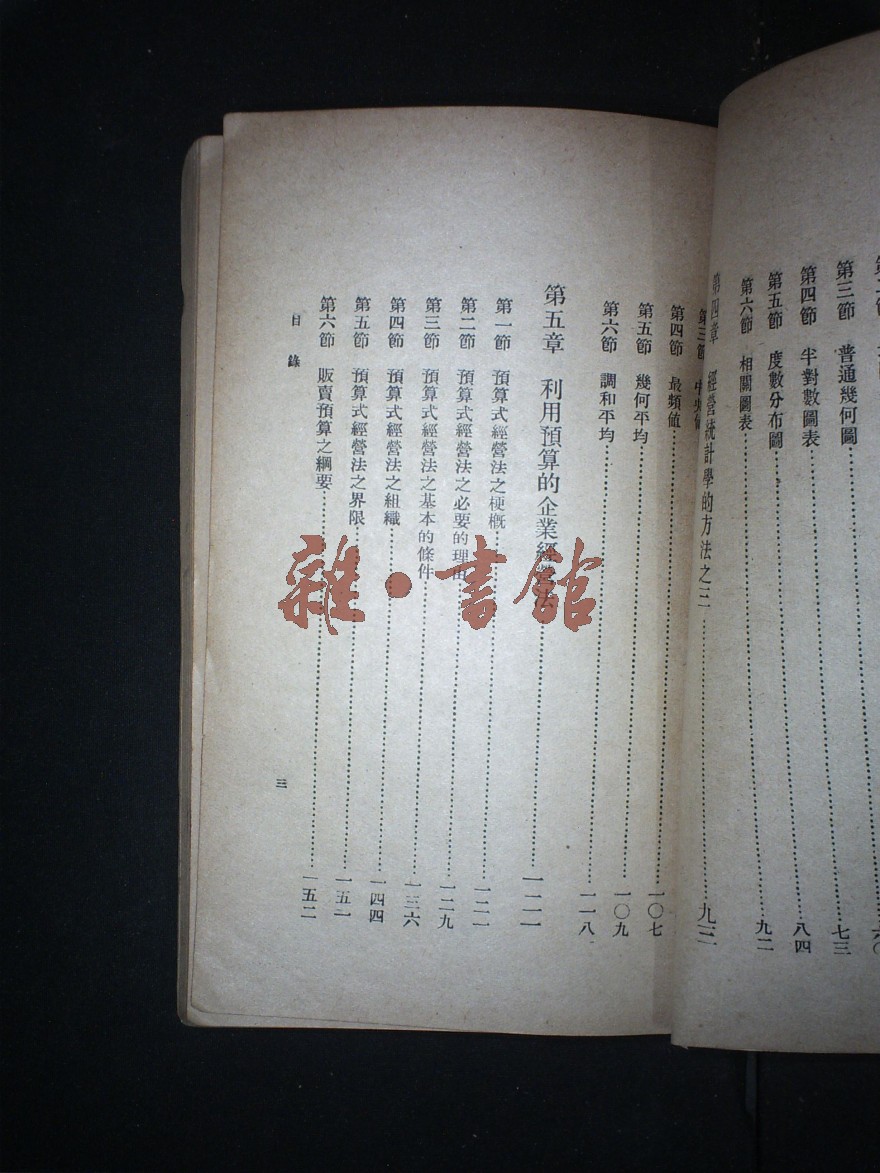 第三節 普通幾何圖……七三
第四節 半對數圖表……八四
第五節 度數分布圖……九二
第六節 相關圖表
第四章 經營統計學的方法之三……九三
第三節 中央値
第四節 最頻値……一〇七
第五節 幾何平均……一〇九
第六節 調和平均……一一八
第五章 利用預算的企業經營法……一二一
第一節 預算式經營法之梗概……一二一
第二節 預算式經營法之必要的理由……一二九
第三節 預算式經營法之基本的條件……一三六
第四節 預算式經營法之組織……一四四
第五節 預算式經營法之界限……一五一
第六節 販賣預算之綱要……一五二
目錄
三
雜·書館